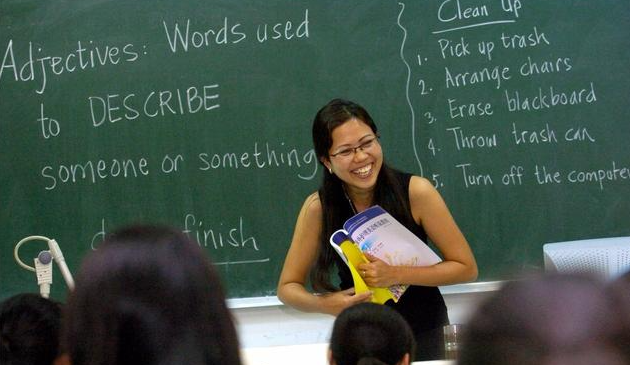 Adjectives: Words used
to DESCRIBE
someone or something
finish
Clean Up
1. Pick up trash
2. Arrange chairs
3. Erase blackboard
4. Throw trash can
5. Turn off the computer